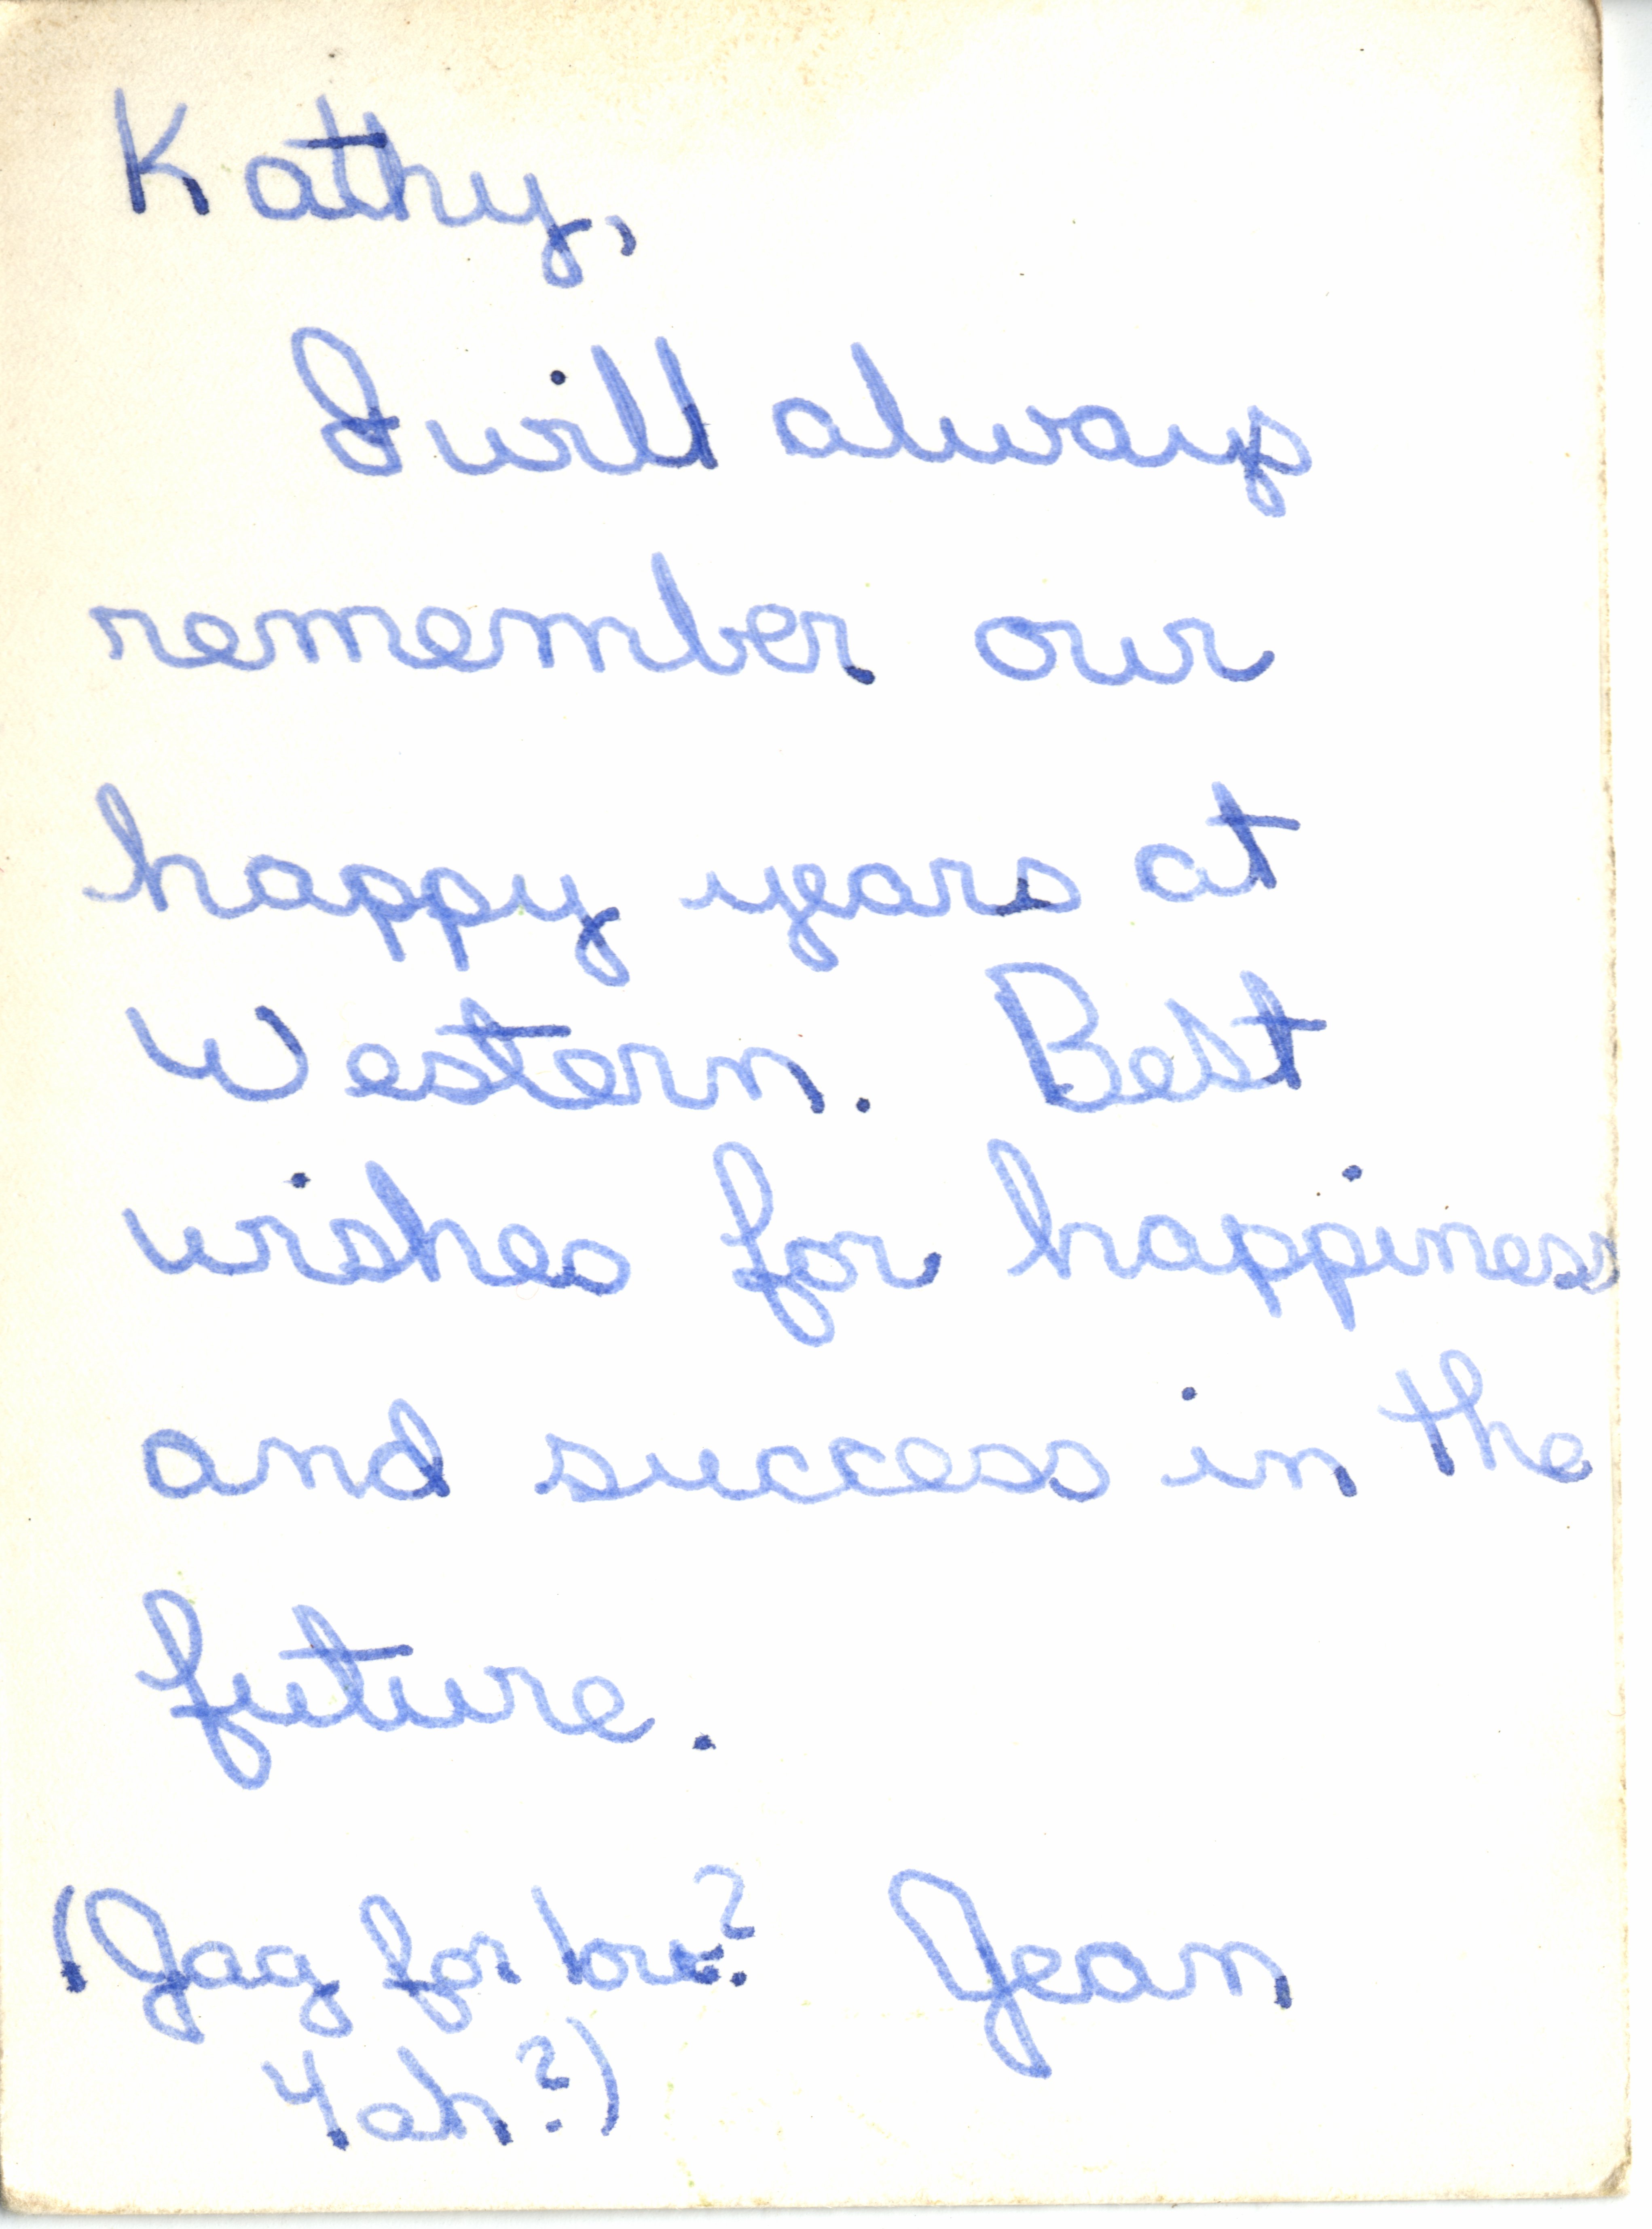 Kathy,
I will always
remember our
happy years at
Western. Best
wishes for happiness
and success in the
future.
(Jag for love? Jean
Yah?)